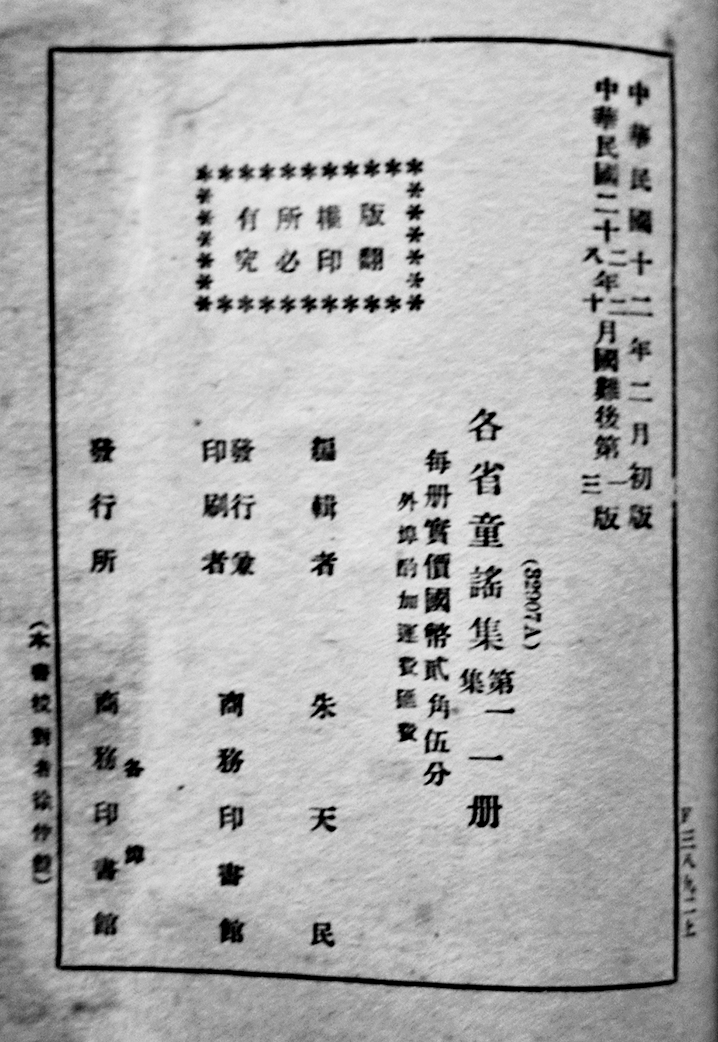 中華民國十二年二月初版
中華民國二十二八年二十月國難後第一三版
(32907A)
各省童謠集第一集一册
每册實價國幣貳角伍分
外埠酌加運費匯費
版權所有
翻印必究
編輯者 朱天民
發行兼印刷者 商務印書館
發行所 各埠商務印書館
(本書校對者徐仲)